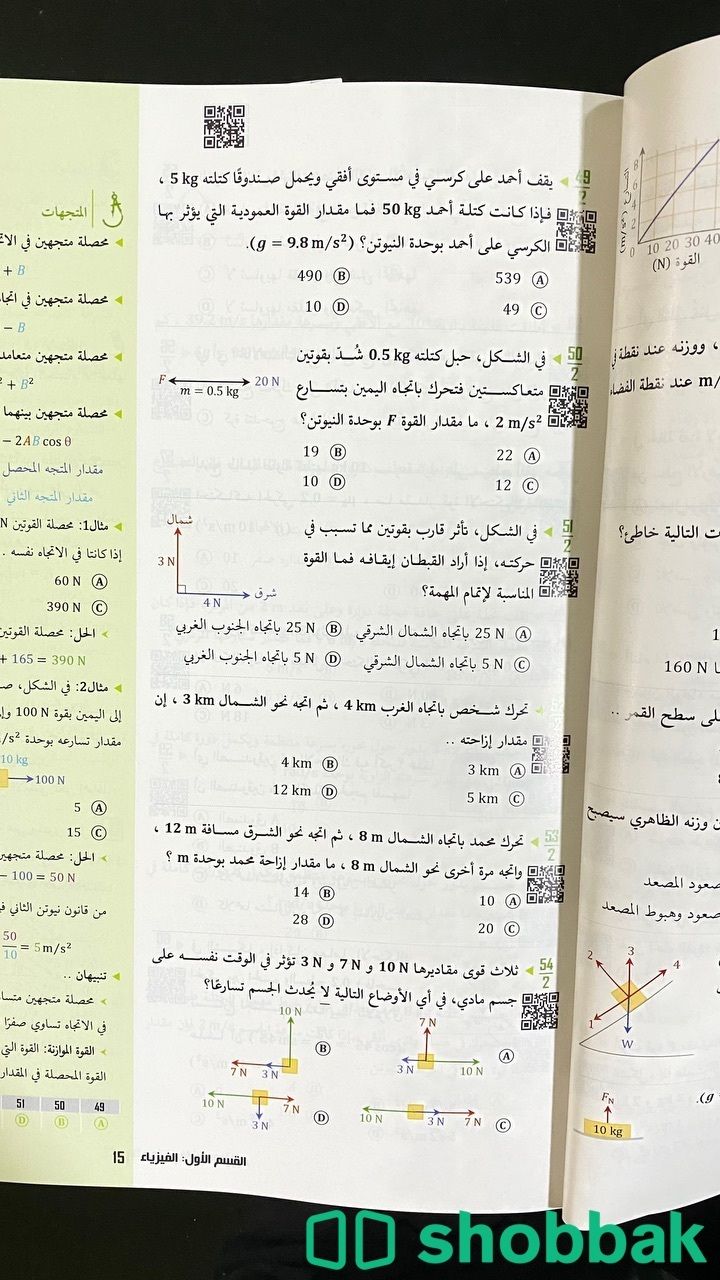 49/2 يقف أحمد على كرسي في مستوى أفقي ويحمل صندوقًا كتلته 5 kg ،
فإذا كانت كتلة أحمد 50 kg فما مقدار القوة العمودية التي يؤثر بها
الكرسي على أحمد بوحدة النيوتن؟ (g = 9.8 m/s²).
Ⓐ 539 Ⓑ 490
Ⓒ 49 Ⓓ 10
50/2 في الشكل، حبل كتلته 0.5 kg شُدّ بقوتين
متعاكستين فتحرك باتجاه اليمين بتسارع
2 m/s² ، ما مقدار القوة F بوحدة النيوتن؟
F 20 N
m = 0.5 kg
Ⓐ 22 Ⓑ 19
Ⓒ 12 Ⓓ 10
51/2 في الشكل، تأثر قارب بقوتين مما تسبب في
حركته، إذا أراد القبطان إيقافه فما القوة
المناسبة لإتمام المهمة؟
شمال
3 N
شرق
4 N
Ⓐ 25 N باتجاه الشمال الشرقي Ⓑ 25 N باتجاه الجنوب الغربي
Ⓒ 5 N باتجاه الشمال الشرقي Ⓓ 5 N باتجاه الجنوب الغربي
تحرك شخص باتجاه الغرب 4 km ، ثم اتجه نحو الشمال 3 km ، إن
مقدار إزاحته ..
Ⓐ 3 km Ⓑ 4 km
Ⓒ 5 km Ⓓ 12 km
53/2 تحرك محمد باتجاه الشمال 8 m ، ثم اتجه نحو الشرق مسافة 12 m ،
واتجه مرة أخرى نحو الشمال 8 m ، ما مقدار إزاحة محمد بوحدة m ؟
Ⓐ 10 Ⓑ 14
Ⓒ 20 Ⓓ 28
54/2 ثلاث قوى مقاديرها 10 N و 7 N و 3 N تؤثر في الوقت نفسه على
جسم مادي، في أي الأوضاع التالية لا يُحدث الجسم تسارعًا؟
Ⓐ 7 N 3 N 10 N
Ⓑ 10 N 7 N 3 N
Ⓒ 10 N 3 N 7 N
Ⓓ 10 N 3 N 7 N
القسم الأول: الفيزياء 15
المتجهات
محصلة متجهين في
+ B
محصلة متجهين في
− B
محصلة متجهين
+ B²
محصلة متجهين بينهما
− 2AB cos θ
مقدار المتجه المحصل
مقدار المتجه الثاني
مثال1: محصلة القوتين N
إذا كانتا في الاتجاه نفسه .
Ⓐ 60 N
Ⓒ 390 N
الحل: محصلة القوتين
+ 165 = 390 N
مثال2: في الشكل،
إلى اليمين بقوة 100 N
مقدار تسارعه بوحدة
10 kg
100 N
Ⓐ 5
Ⓒ 15
الحل: محصلة متجهين
− 100 = 50 N
من قانون نيوتن الثاني
50/10 = 5 m/s²
تنبيهان ..
محصلة متجهين
في الاتجاه تساوي صفرًا
القوة الموازنة: القوة التي
القوة المحصلة في المقدار
49 50 51
Ⓐ Ⓑ Ⓓ
8
6
4
2
0
10 20 30 40
القوة (N)
، ووزنه عند نقطة
عند نقطة الفضاء
ت التالية خاطئ؟
160 N
لى سطح القمر ..
ن وزنه الظاهري سيصبح
صعود المصعد
صعود وهبوط المصعد
1 2 3 4
W
F_N
10 kg
shobbak